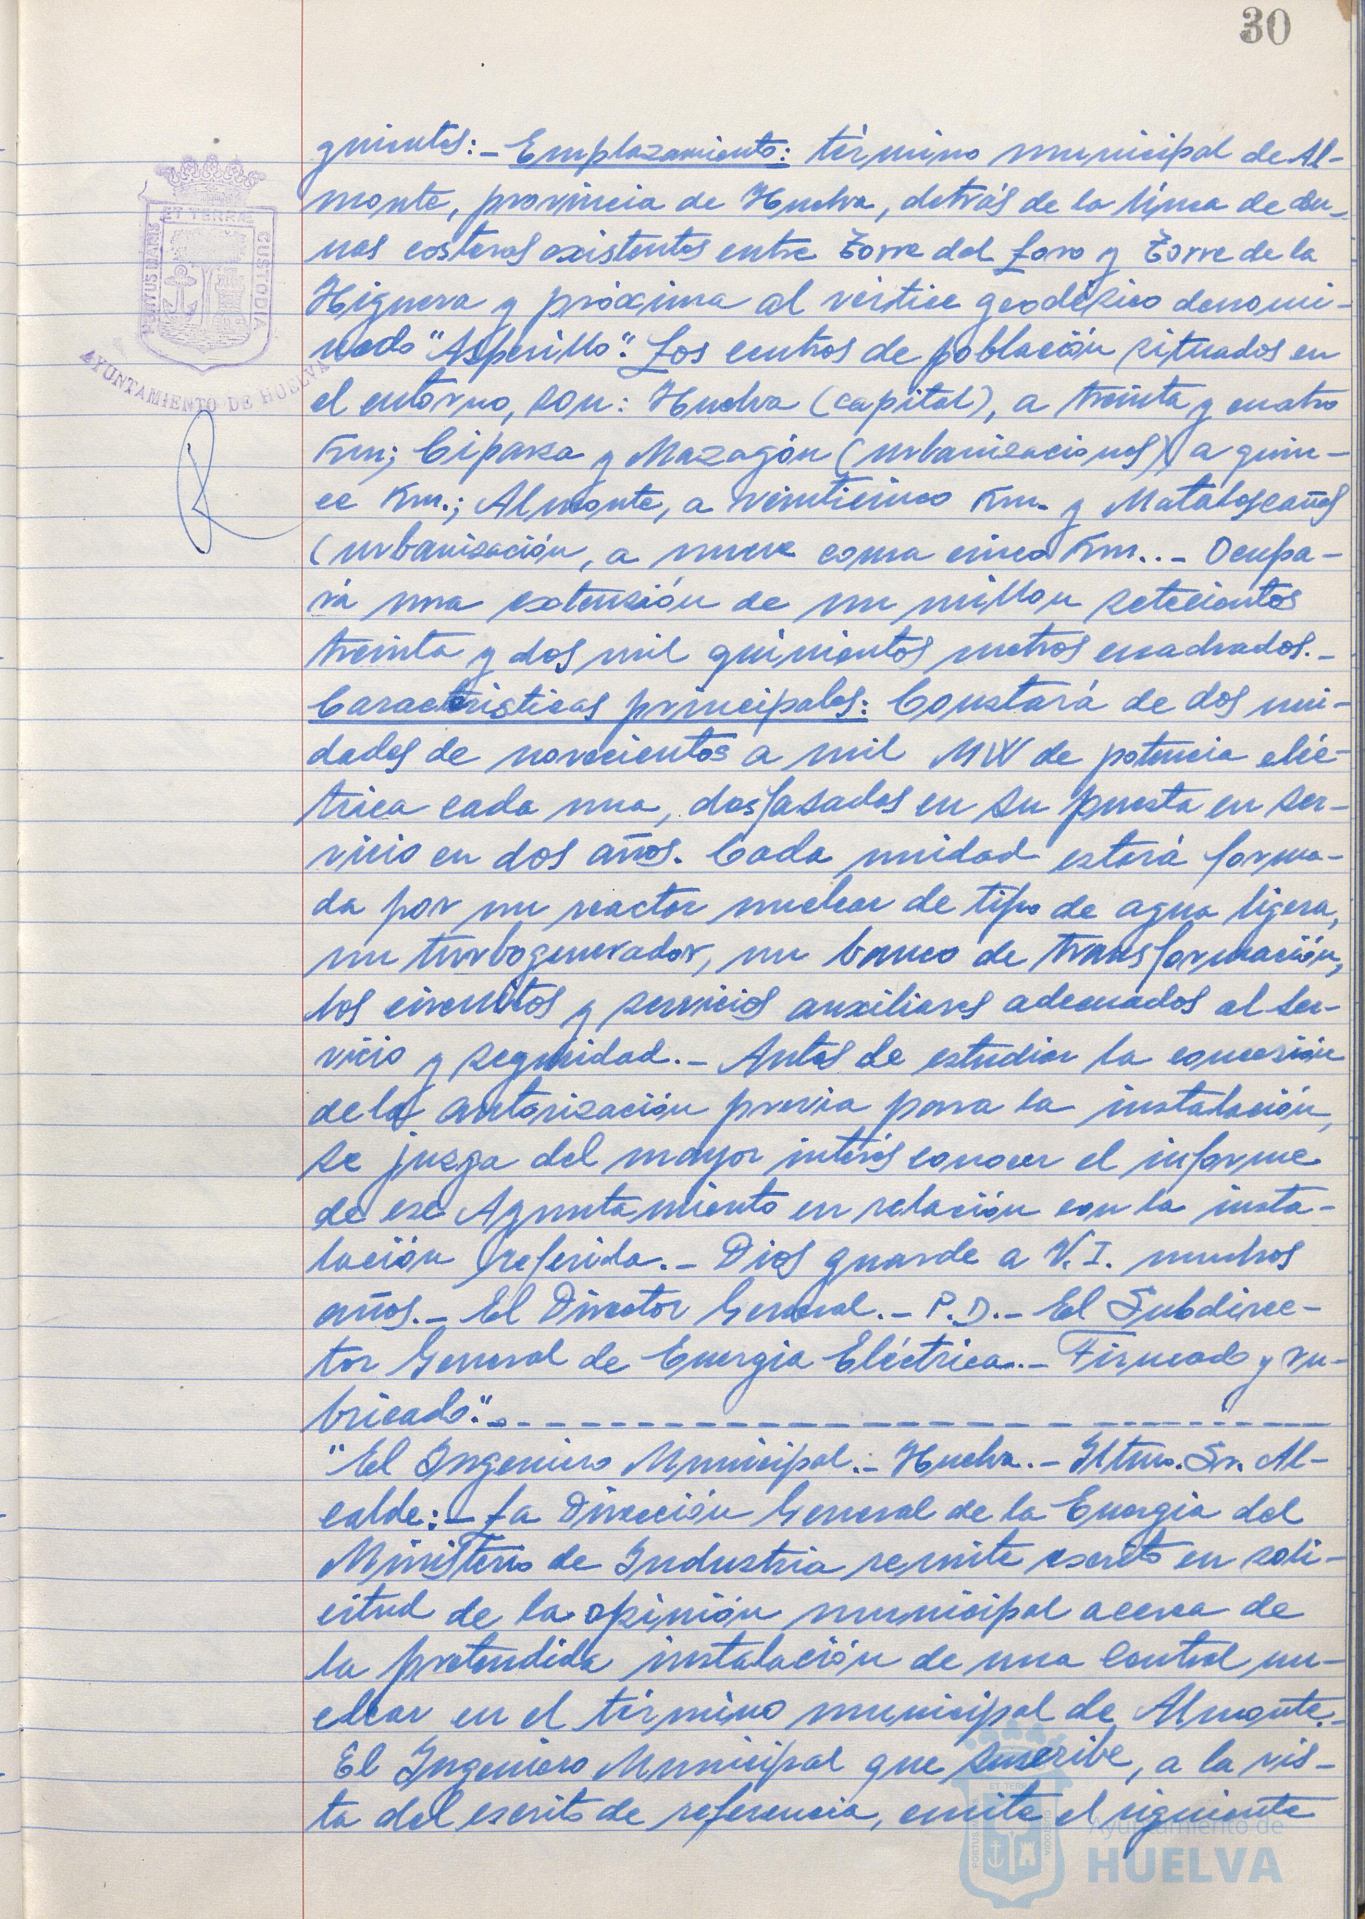 30
guientes:- Emplazamiento: término municipal de Al-
monte, provincia de Huelva, detrás de la línea de du-
nas costeras existentes entre Torre del Loro y Torre de la
Higuera y próxima al vértice geodésico denomi-
nado "Asperillo". Los centros de población situados en
el entorno, son: Huelva (capital), a treinta y cuatro
Km; Ciparsa y Mazagón (urbanizaciones) a quin-
ce Km.; Almonte, a veinticinco Km. y Matalascañas
(urbanización, a nueve coma cinco Km..- Ocupa-
rá una extensión de un millon setecientos
treinta y dos mil quinientos metros cuadrados.-
Caracteristicas principales: Constará de dos uni-
dades de novecientos a mil MW de potencia eléc-
trica cada una, desfasadas en su puesta en ser-
vicio en dos años. Cada unidad estará forma-
da por un reactor nuclear de tipo de agua ligera,
un turbogenerador, un banco de transformación,
los circuitos y servicios auxiliares adecuados al ser-
vicio y seguridad.- Antes de estudiar la concesión
de la autorización previa para la instalación,
se juzga del mayor interés conocer el informe
de ese Ayuntamiento en relación con la insta-
lación referida.- Dios guarde a V.I. muchos
años.- El Director General.- P.D.- El Subdirec-
tor General de Energia Eléctrica..- Firmado y ru-
bricado".-
"El Ingeniero Municipal.- Huelva.- Iltmo. Sr. Al-
calde:- La Dirección General de la Energia del
Ministerio de Industria remite escrito en soli-
citud de la opinión municipal acerca de
la pretendida instalación de una Central nu-
clear en el término municipal de Almonte.-
El Ingeniero Municipal que suscribe, a la vis-
ta del escrito de referencia, emite el siguiente
PORTUS MARIS ET TERRAE CUSTODIA
AYUNTAMIENTO DE HUELVA
PORTUS MARIS ET TERRAE CUSTODIA
Ayuntamiento de
HUELVA